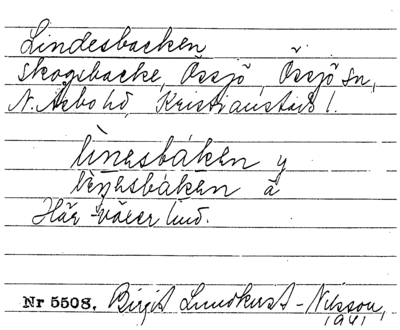 Lindesbacken
Skogsbacke, Össjö, Össjö sn,
N. Åsbo hd, Kristianstads l.
lìnesbáken y
lìnesbákan ä
Här växer lind.
Nr 5508. Birgit Lundkvist-Nilsson,
1941